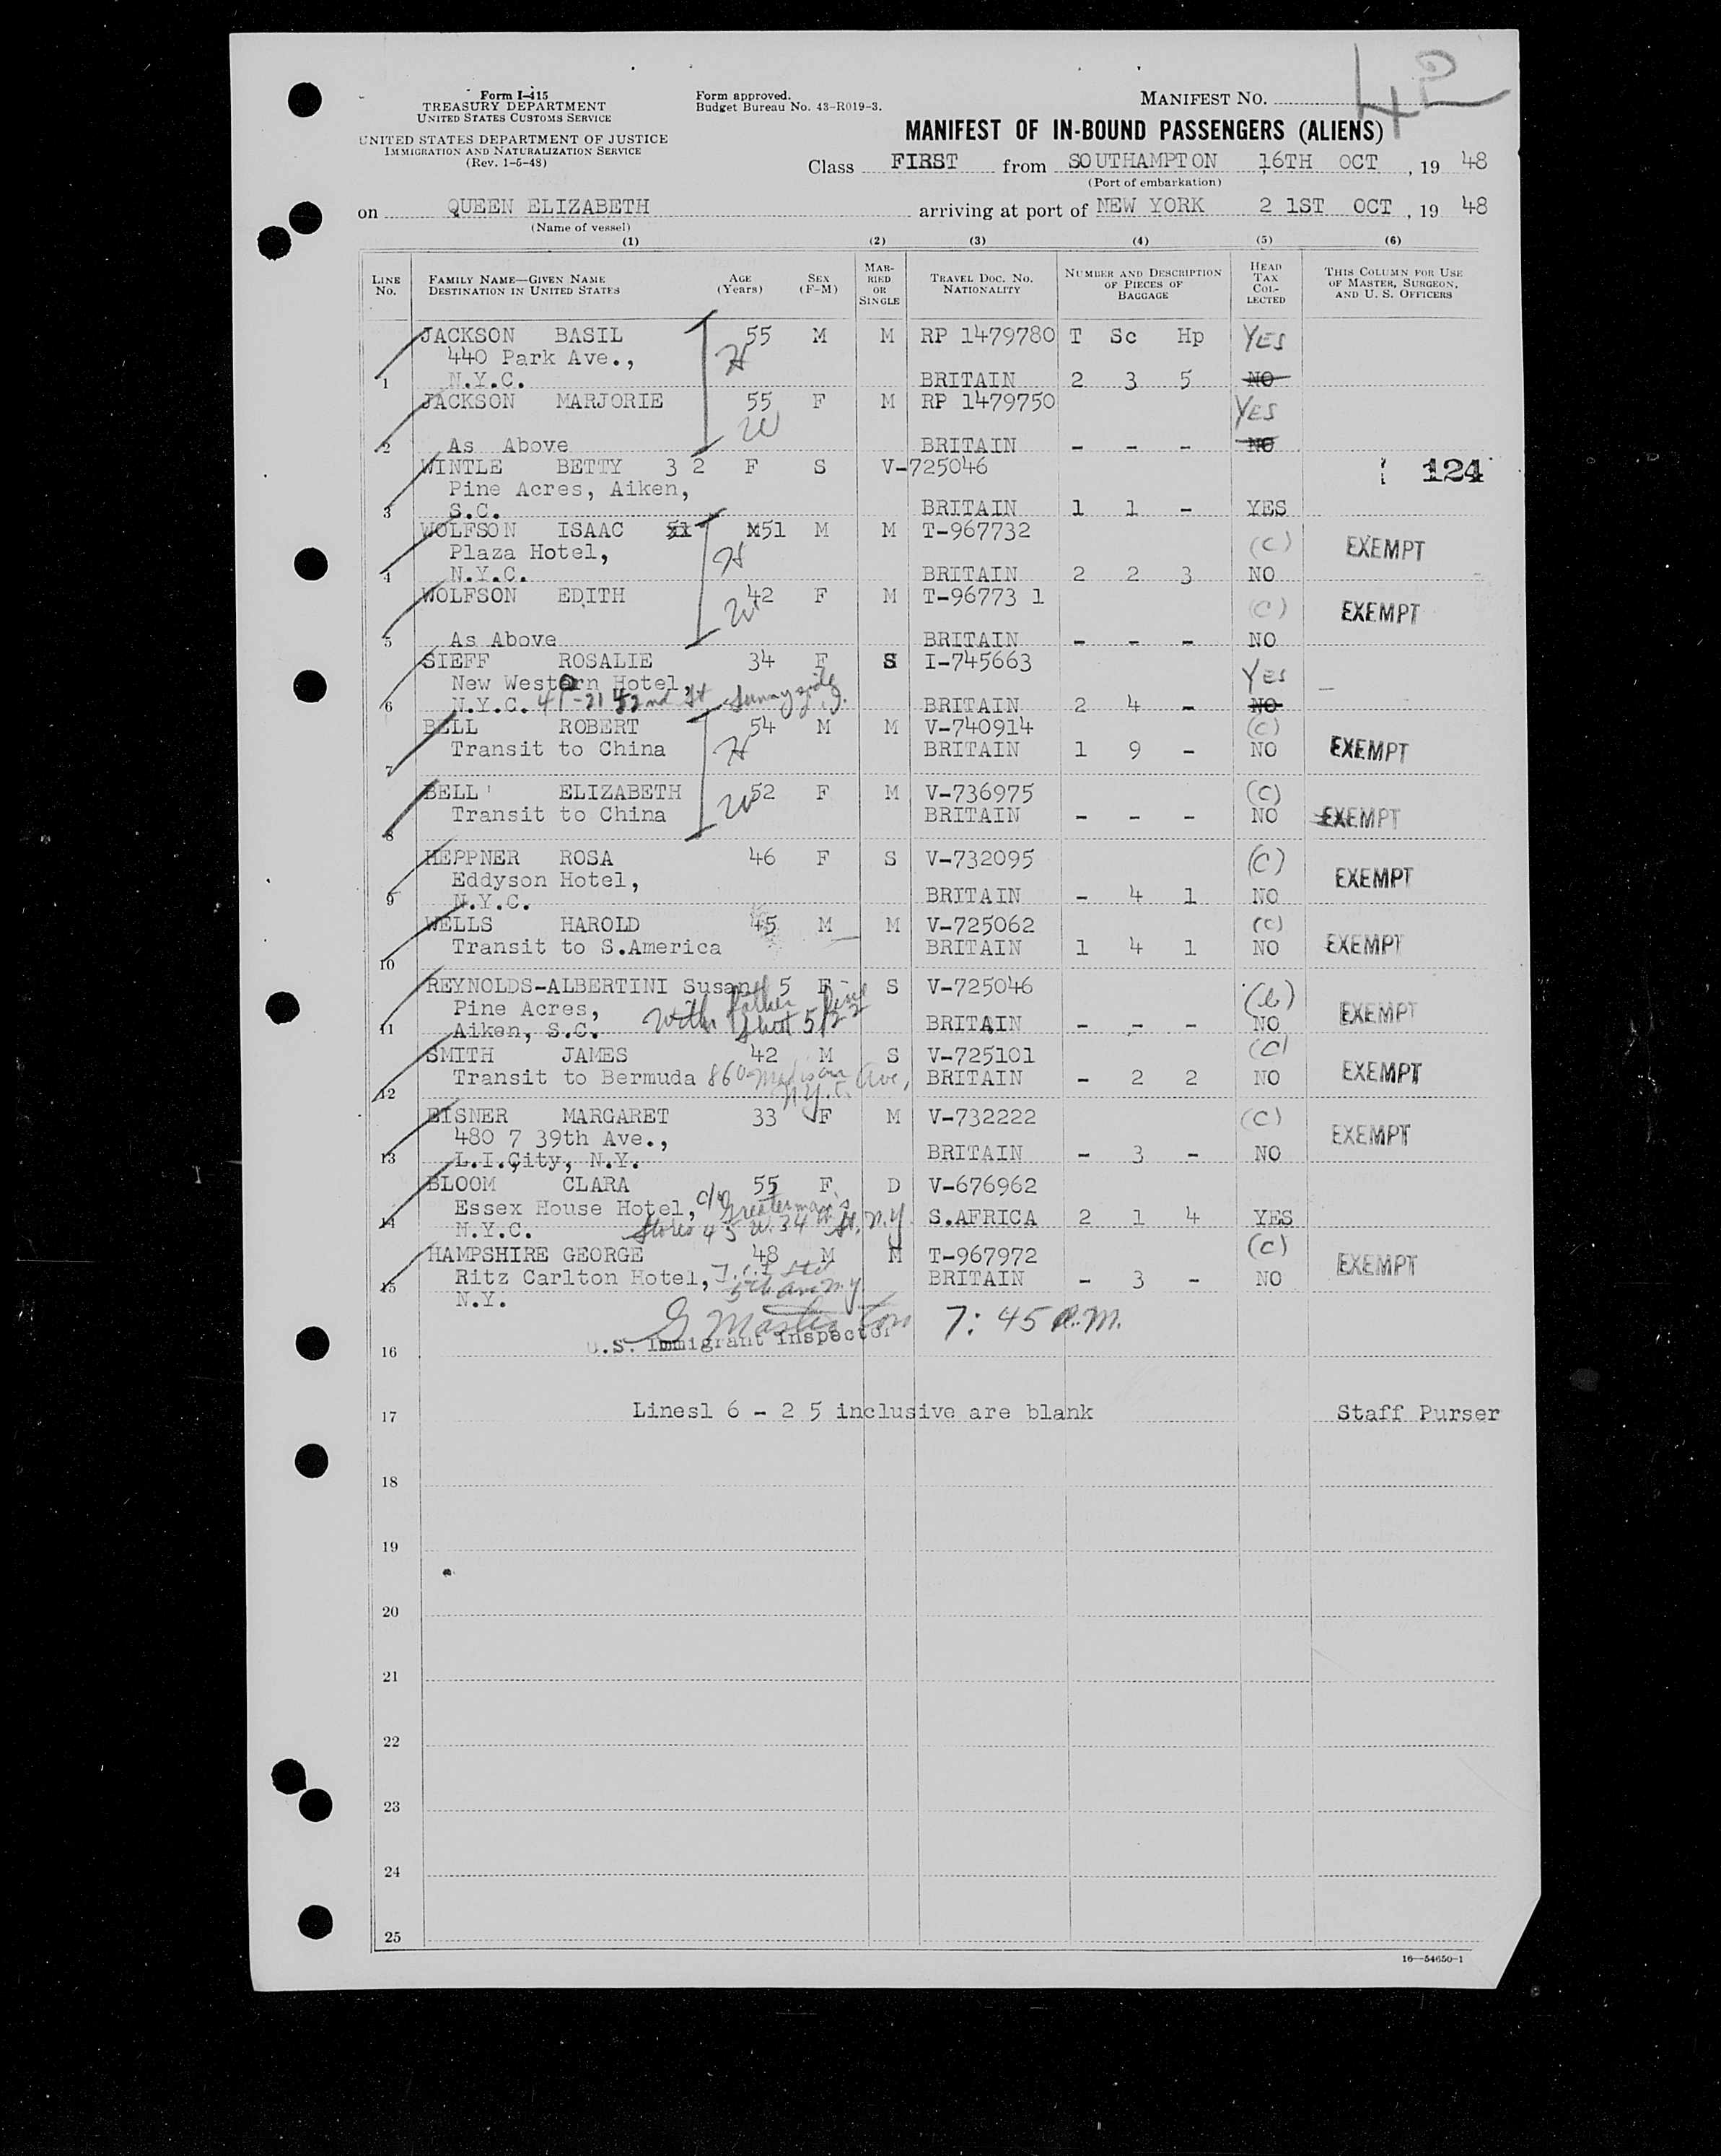 42
Form I-415
TREASURY DEPARTMENT
UNITED STATES CUSTOMS SERVICE
UNITED STATES DEPARTMENT OF JUSTICE
IMMIGRATION AND NATURALIZATION SERVICE
(Rev. 1-5-48)
Form approved.
Budget Bureau No. 43-R019-3.
MANIFEST NO.
MANIFEST OF IN-BOUND PASSENGERS (ALIENS)
Class FIRST from SOUTHAMPTON 16TH OCT, 19 48
(Port of embarkation)
on QUEEN ELIZABETH arriving at port of NEW YORK 2 1ST OCT, 19 48
(Name of vessel)
(1) (2) (3) (4) (5) (6)
LINE NO. FAMILY NAME—GIVEN NAME DESTINATION IN UNITED STATES AGE (Years) SEX (F-M) MARRIED OR SINGLE TRAVEL DOC. NO. NATIONALITY NUMBER AND DESCRIPTION OF PIECES OF BAGGAGE HEAD TAX COLLECTED THIS COLUMN FOR USE OF MASTER, SURGEON, AND U. S. OFFICERS
JACKSON BASIL 55 M M RP 1479780 T Sc Hp YES
440 Park Ave., H
1 N.Y.C. BRITAIN 2 3 5 NO
JACKSON MARJORIE 55 F M RP 1479750 YES
W
2 As Above BRITAIN - - - NO
WINTLE BETTY 3 2 F S V-725046 124
Pine Acres, Aiken,
3 S.C. BRITAIN 1 1 - YES
WOLFSON ISAAC 51 M51 M M T-967732
Plaza Hotel, H (C) EXEMPT
4 N.Y.C. BRITAIN 2 2 3 NO
WOLFSON EDITH 42 F M T-96773 1
W (C) EXEMPT
5 As Above BRITAIN - - - NO
SIEFF ROSALIE 34 F S I-745663
New Western Hotel, YES
6 N.Y.C. 41-21 42nd St Sunnyside BRITAIN 2 4 - NO
BELL ROBERT 54 M M V-740914 (C)
Transit to China H BRITAIN 1 9 - NO EXEMPT
7
BELL ELIZABETH 52 F M V-736975 (C)
Transit to China W BRITAIN - - - NO EXEMPT
8
HEPPNER ROSA 46 F S V-732095 (C)
Eddyson Hotel, EXEMPT
9 N.Y.C. BRITAIN - 4 1 NO
WELLS HAROLD 45 M M V-725062 (C)
Transit to S.America BRITAIN 1 4 1 NO EXEMPT
10
REYNOLDS-ALBERTINI Susan 5 F S V-725046
Pine Acres, with father line (b) EXEMPT
11 Aiken, S.C. sheet 5/22 BRITAIN - - - NO
SMITH JAMES 42 M S V-725101 (C)
Transit to Bermuda 860 Madison Ave, BRITAIN - 2 2 NO EXEMPT
12 N.Y.C.
EISNER MARGARET 33 F M V-732222 (C)
480 7 39th Ave., EXEMPT
13 L.I.City, N.Y. BRITAIN - 3 - NO
BLOOM CLARA 55 F D V-676962
Essex House Hotel, c/o Greaterman's
14 N.Y.C. Stores 45 W. 34 St. N.Y. S.AFRICA 2 1 4 YES
HAMPSHIRE GEORGE 48 M M T-967972 (C)
15 Ritz Carlton Hotel, 5th Ave N.Y BRITAIN - 3 - NO EXEMPT
N.Y.
7:45 P.M.
U.S. Immigrant Inspector
16
17 Lines1 6 - 2 5 inclusive are blank Staff Purser
18
19
20
21
22
23
24
25
16—54650-1